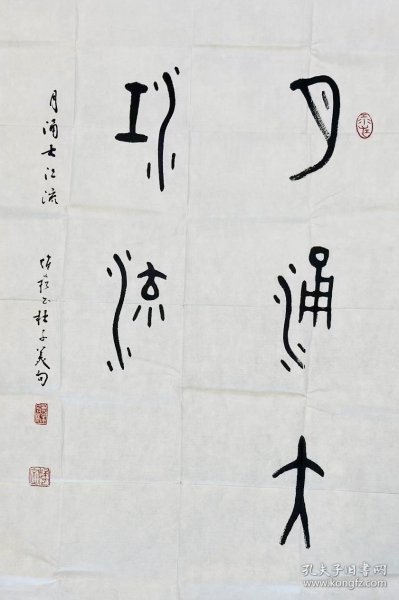 月涌大
江流
月涌大江流
书杜子美句
孔夫子旧书网
www.kongfz.com